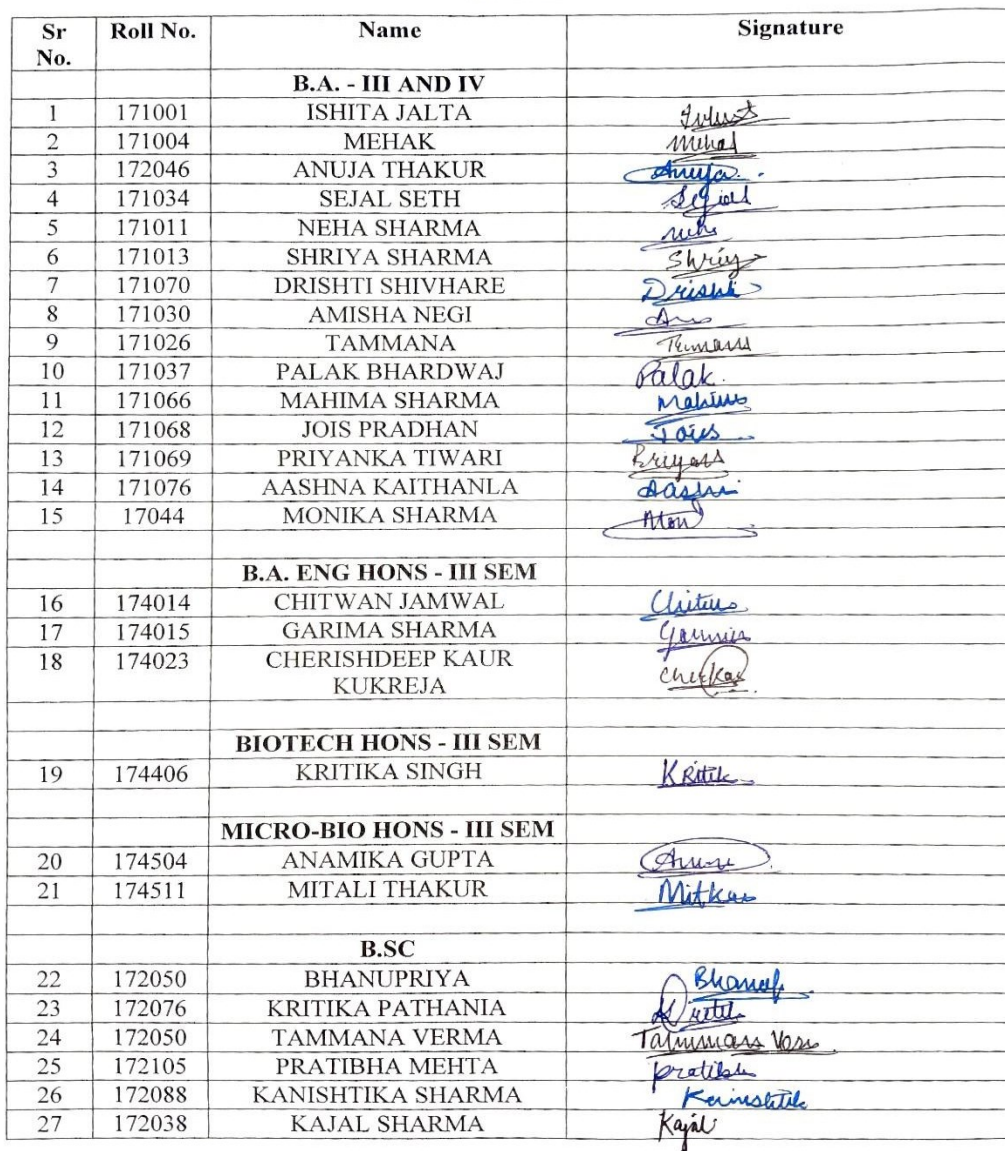 Sr No. Roll No. Name Signature
B.A. - III AND IV
1 171001 ISHITA JALTA
2 171004 MEHAK Mehak
3 172046 ANUJA THAKUR Anuja
4 171034 SEJAL SETH
5 171011 NEHA SHARMA
6 171013 SHRIYA SHARMA Shriy
7 171070 DRISHTI SHIVHARE Drishti
8 171030 AMISHA NEGI
9 171026 TAMMANA
10 171037 PALAK BHARDWAJ Palak.
11 171066 MAHIMA SHARMA
12 171068 JOIS PRADHAN Jois
13 171069 PRIYANKA TIWARI
14 171076 AASHNA KAITHANLA
15 17044 MONIKA SHARMA Mon
B.A. ENG HONS - III SEM
16 174014 CHITWAN JAMWAL
17 174015 GARIMA SHARMA
18 174023 CHERISHDEEP KAUR
KUKREJA
BIOTECH HONS - III SEM
19 174406 KRITIKA SINGH
MICRO-BIO HONS - III SEM
20 174504 ANAMIKA GUPTA
21 174511 MITALI THAKUR
B.SC
22 172050 BHANUPRIYA
23 172076 KRITIKA PATHANIA
24 172050 TAMMANA VERMA
25 172105 PRATIBHA MEHTA
26 172088 KANISHTIKA SHARMA
27 172038 KAJAL SHARMA Kajal